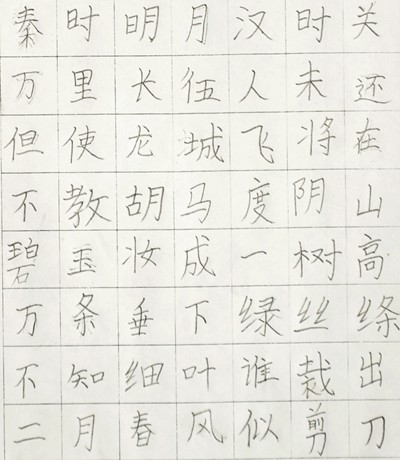 秦时明月汉时关
万里长伍人未还
但使龙城飞将在
不教胡马度阴山
碧玉妆成一树高
万条垂下绿丝绦
不知细叶谁裁出
二月春风似剪刀